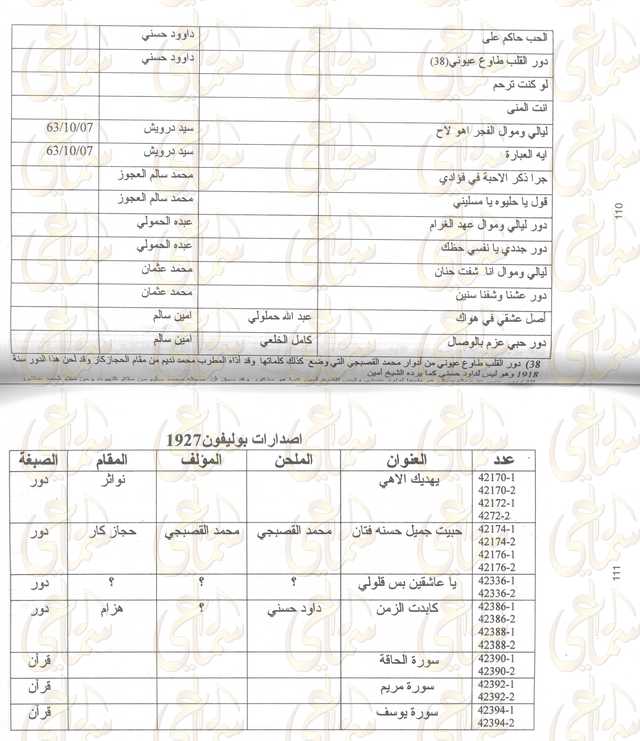 الحب حاكم على داوود حسني
دور القلب طاوع عيوني(38) داوود حسني
لو كنت ترحم
انت المنى
ليالي وموال الفجر اهو لاح سيد درويش 63/10/07
ايه العبارة سيد درويش 63/10/07
جرا ذكر الاحبة في فؤادي محمد سالم العجوز
قول يا حليوه يا مسليني محمد سالم العجوز
دور ليالي وموال عهد الغرام عبده الحمولي
دور جددي يا نفسي حظك عبده الحمولي
ليالي وموال انا شفت حنان محمد عثمان
دور عشنا وشفنا سنين محمد عثمان
أصل عشقي في هواك عبد الله حملولي امين سالم
دور حبي عزم بالوصال كامل الخلعي امين سالم
38) دور القلب طاوع عيوني من أدوار محمد القصبجي التي وضع كذلك كلماتها وقد أداه المطرب محمد نديم من مقام الحجازكار وقد لحن هذا الدور سنة
1918 وهو ليس لداود حسني كما يرده الشيخ أمين
110
اصدارات بوليفون1927
عدد العنوان الملحن المؤلف المقام الصبغة
42170-1 يهديك الاهي نواثر دور
42170-2
42172-1
4272-2
42174-1 حبيت جميل حسنه فتان محمد القصبجي محمد القصبجي حجاز كار دور
42174-2
42176-1
42176-2
42336-1 يا عاشقين بس قلولي ؟ ؟ ؟ دور
42336-2
42386-1 كابدت الزمن داود حسني ؟ هزام دور
42386-2
42388-1
42388-2
42390-1 سورة الحاقة قرآن
42390-2
42392-1 سورة مريم قرآن
42392-2
42394-1 سورة يوسف قرآن
42394-2
111
سماعي